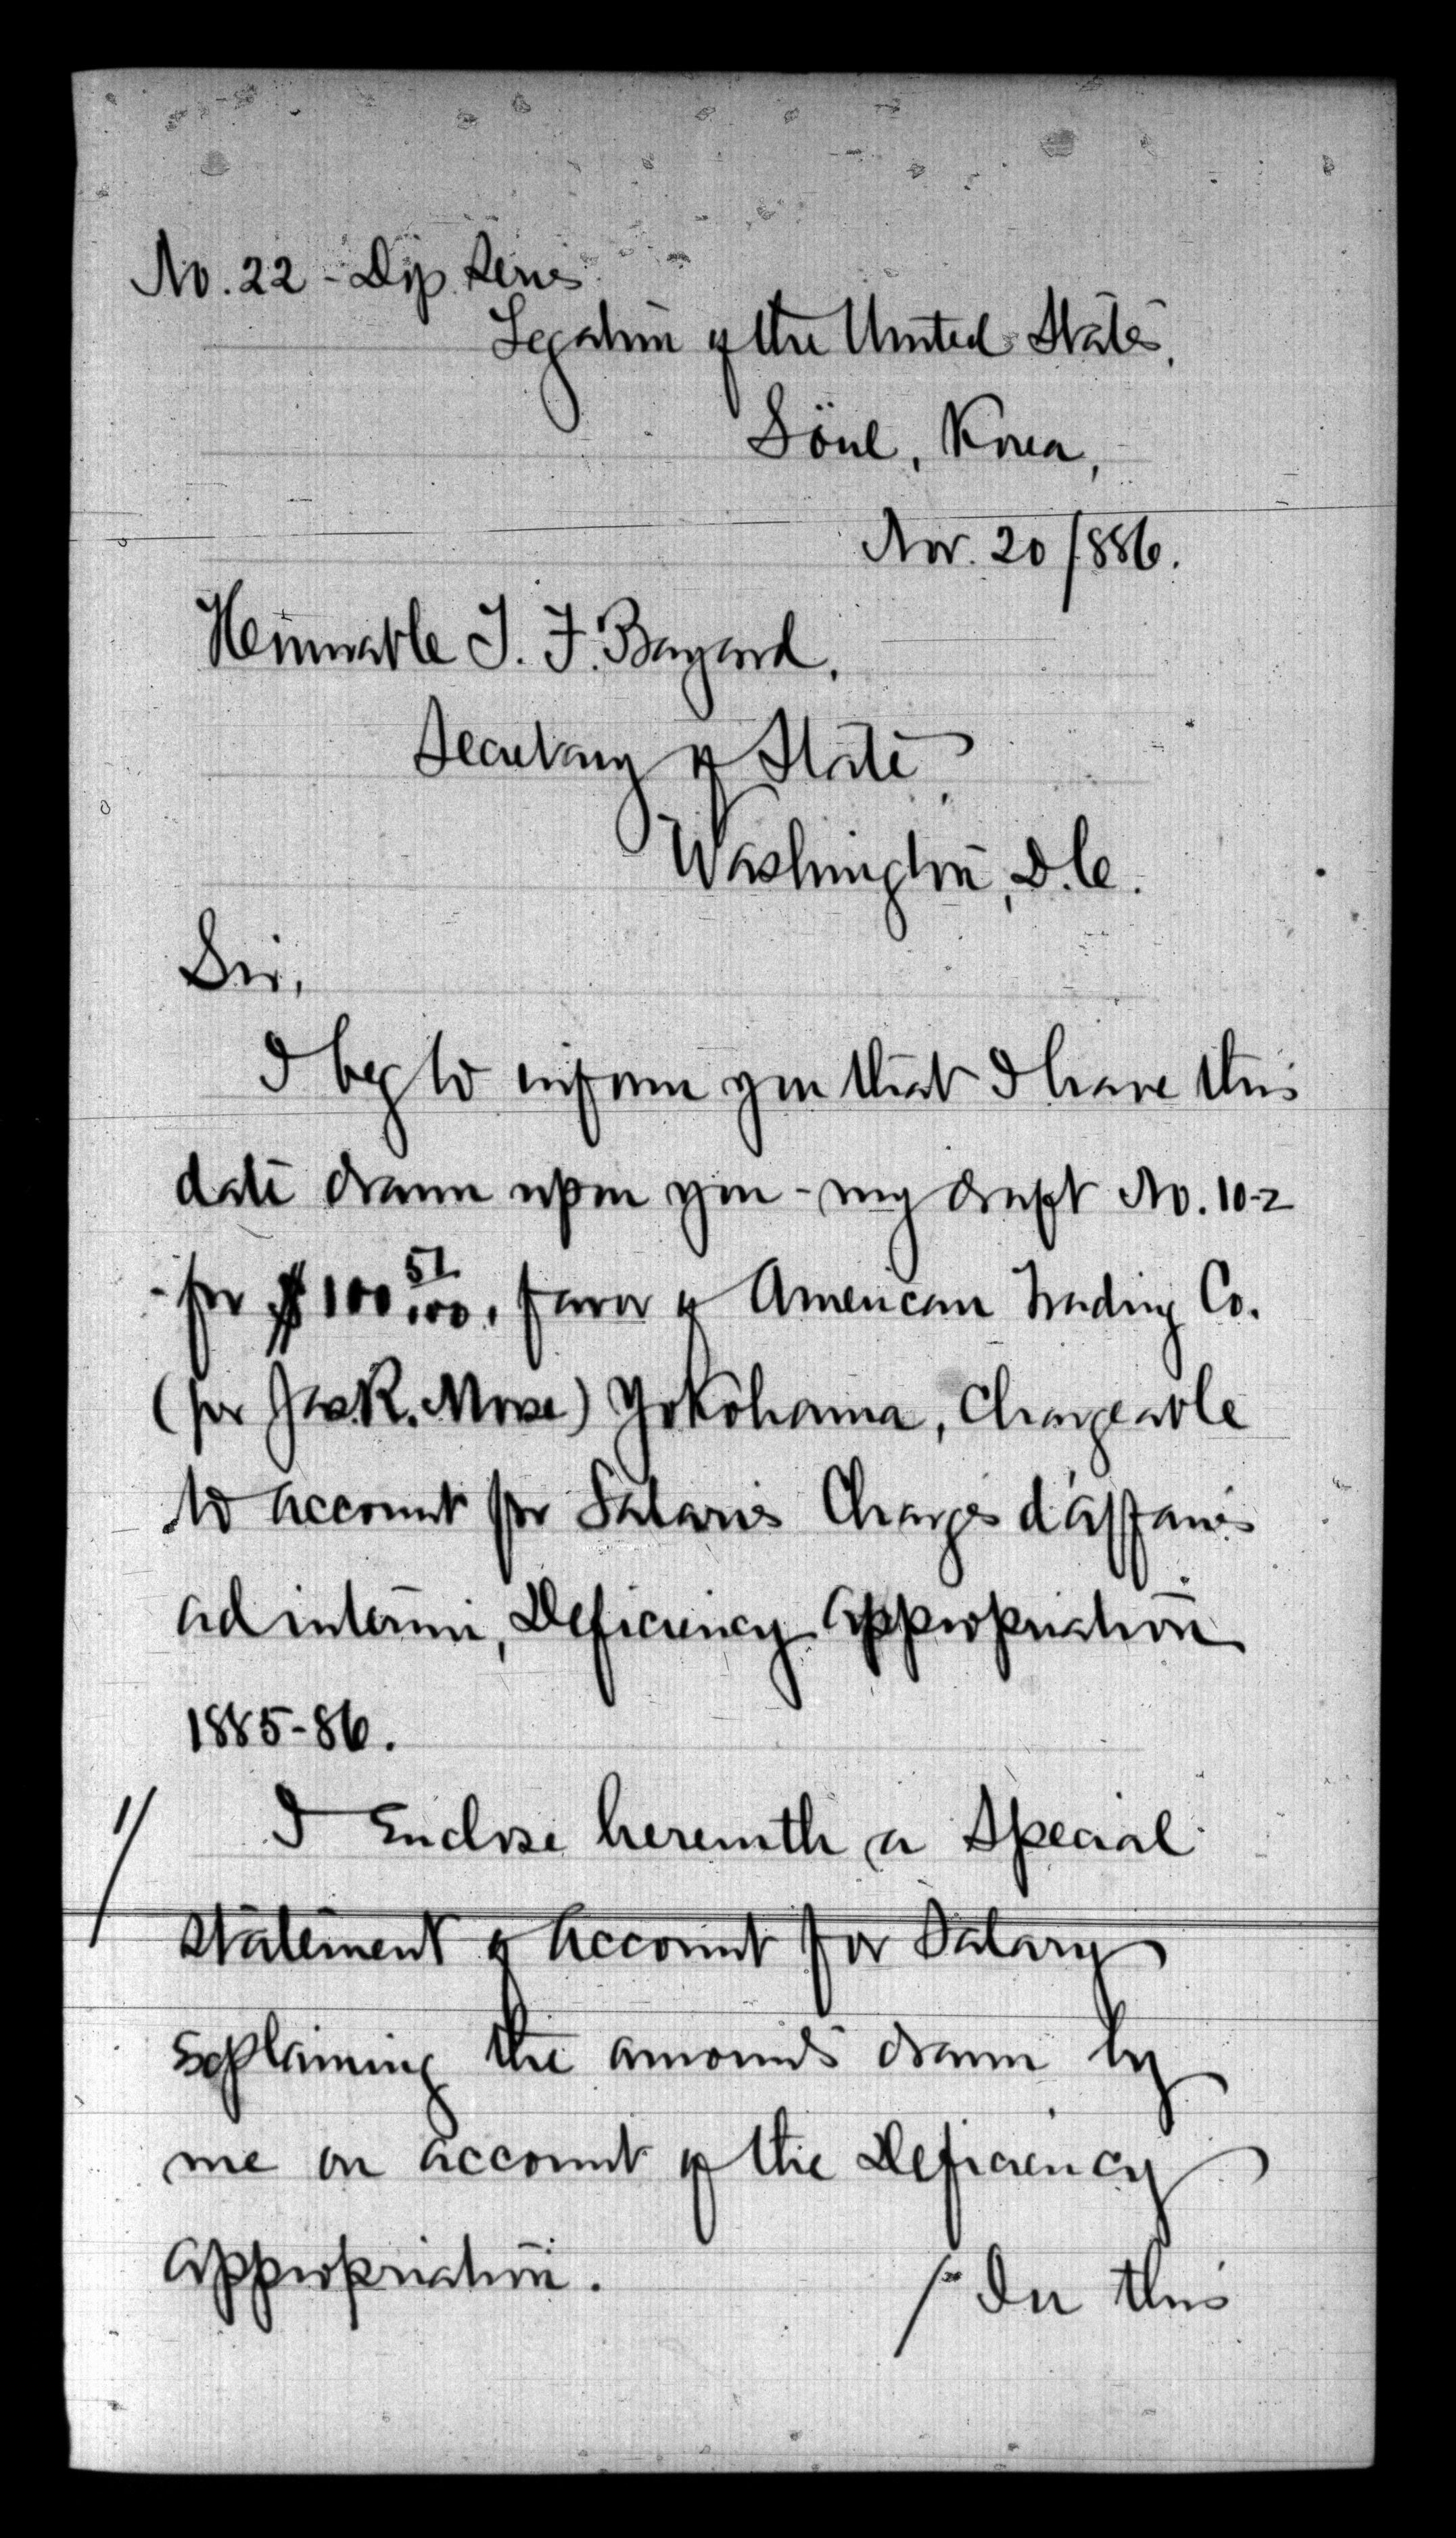 No. 22 - Dip. Series
Legation of the United States,
Söul, Korea,
Nov. 20 / 886.
Honorable T. F. Bayard,
Secretary of State,
Washington, D.C.
Sir,
I beg to inform you that I have this
date drawn upon you - my draft No. 10-2
- for $100 51/100, favor of American Trading Co.
(per Jas. R. Morse) Yokohama, Chargeable
to account for Salaries Chargés d'affaires
ad interim, Deficiency Appropriation
1885-86.
1/ I Enclose herewith a Special
Statement of Account for Salary
Explaining the amounts drawn by
me on account of the Deficiency
Appropriation. / In this